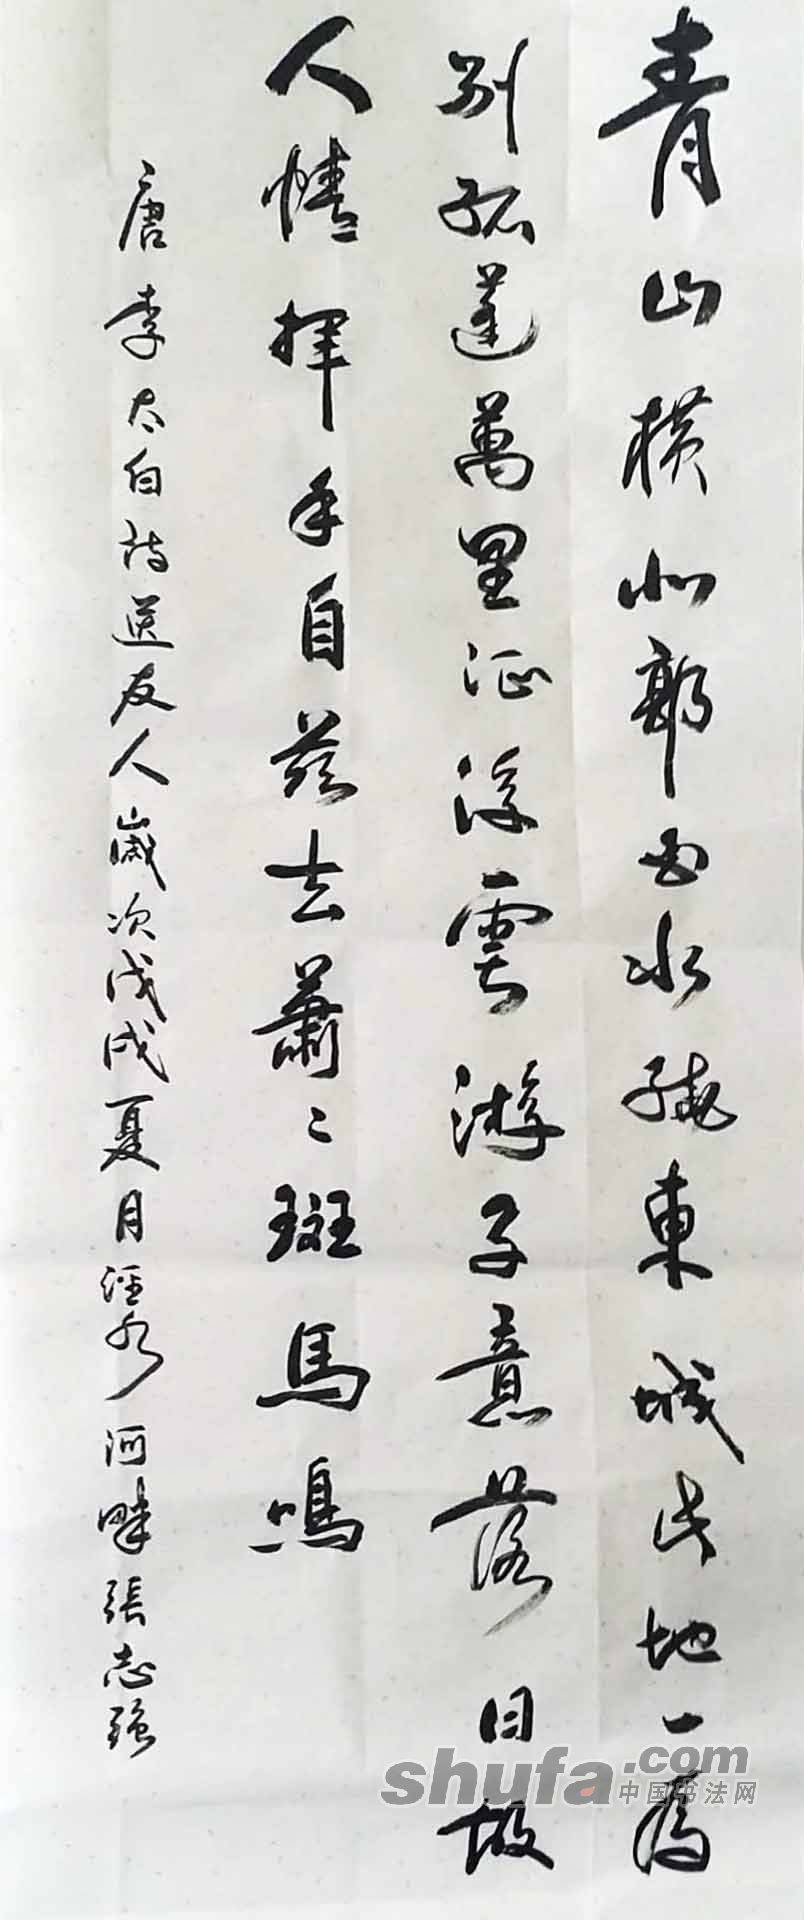 青山橫北郭白水繞東城此地一為
別孤蓬萬里征浮雲游子意落日故
人情揮手自茲去蕭〻斑馬鳴
唐李太白詩送友人歲次戊戌夏月涇水河畔張志強
shufa.com
中国书法网